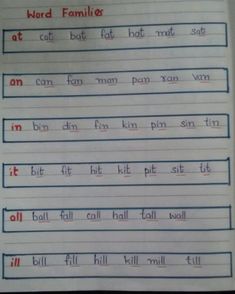 Word Families
at cat bat fat hat mat sat
an can fan man pan ran van
in bin din fin kin pin sin tin
it bit fit hit kit pit sit tit
all ball fall call hall tall wall
ill bill fill hill kill mill till